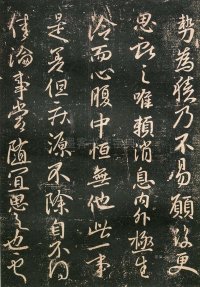 勢為積乃不易願復更
思之唯賴消息內外極生
冷而心腹中恒無他此一事
是差但疾源不除自不得
佳論事當隨宜思之也